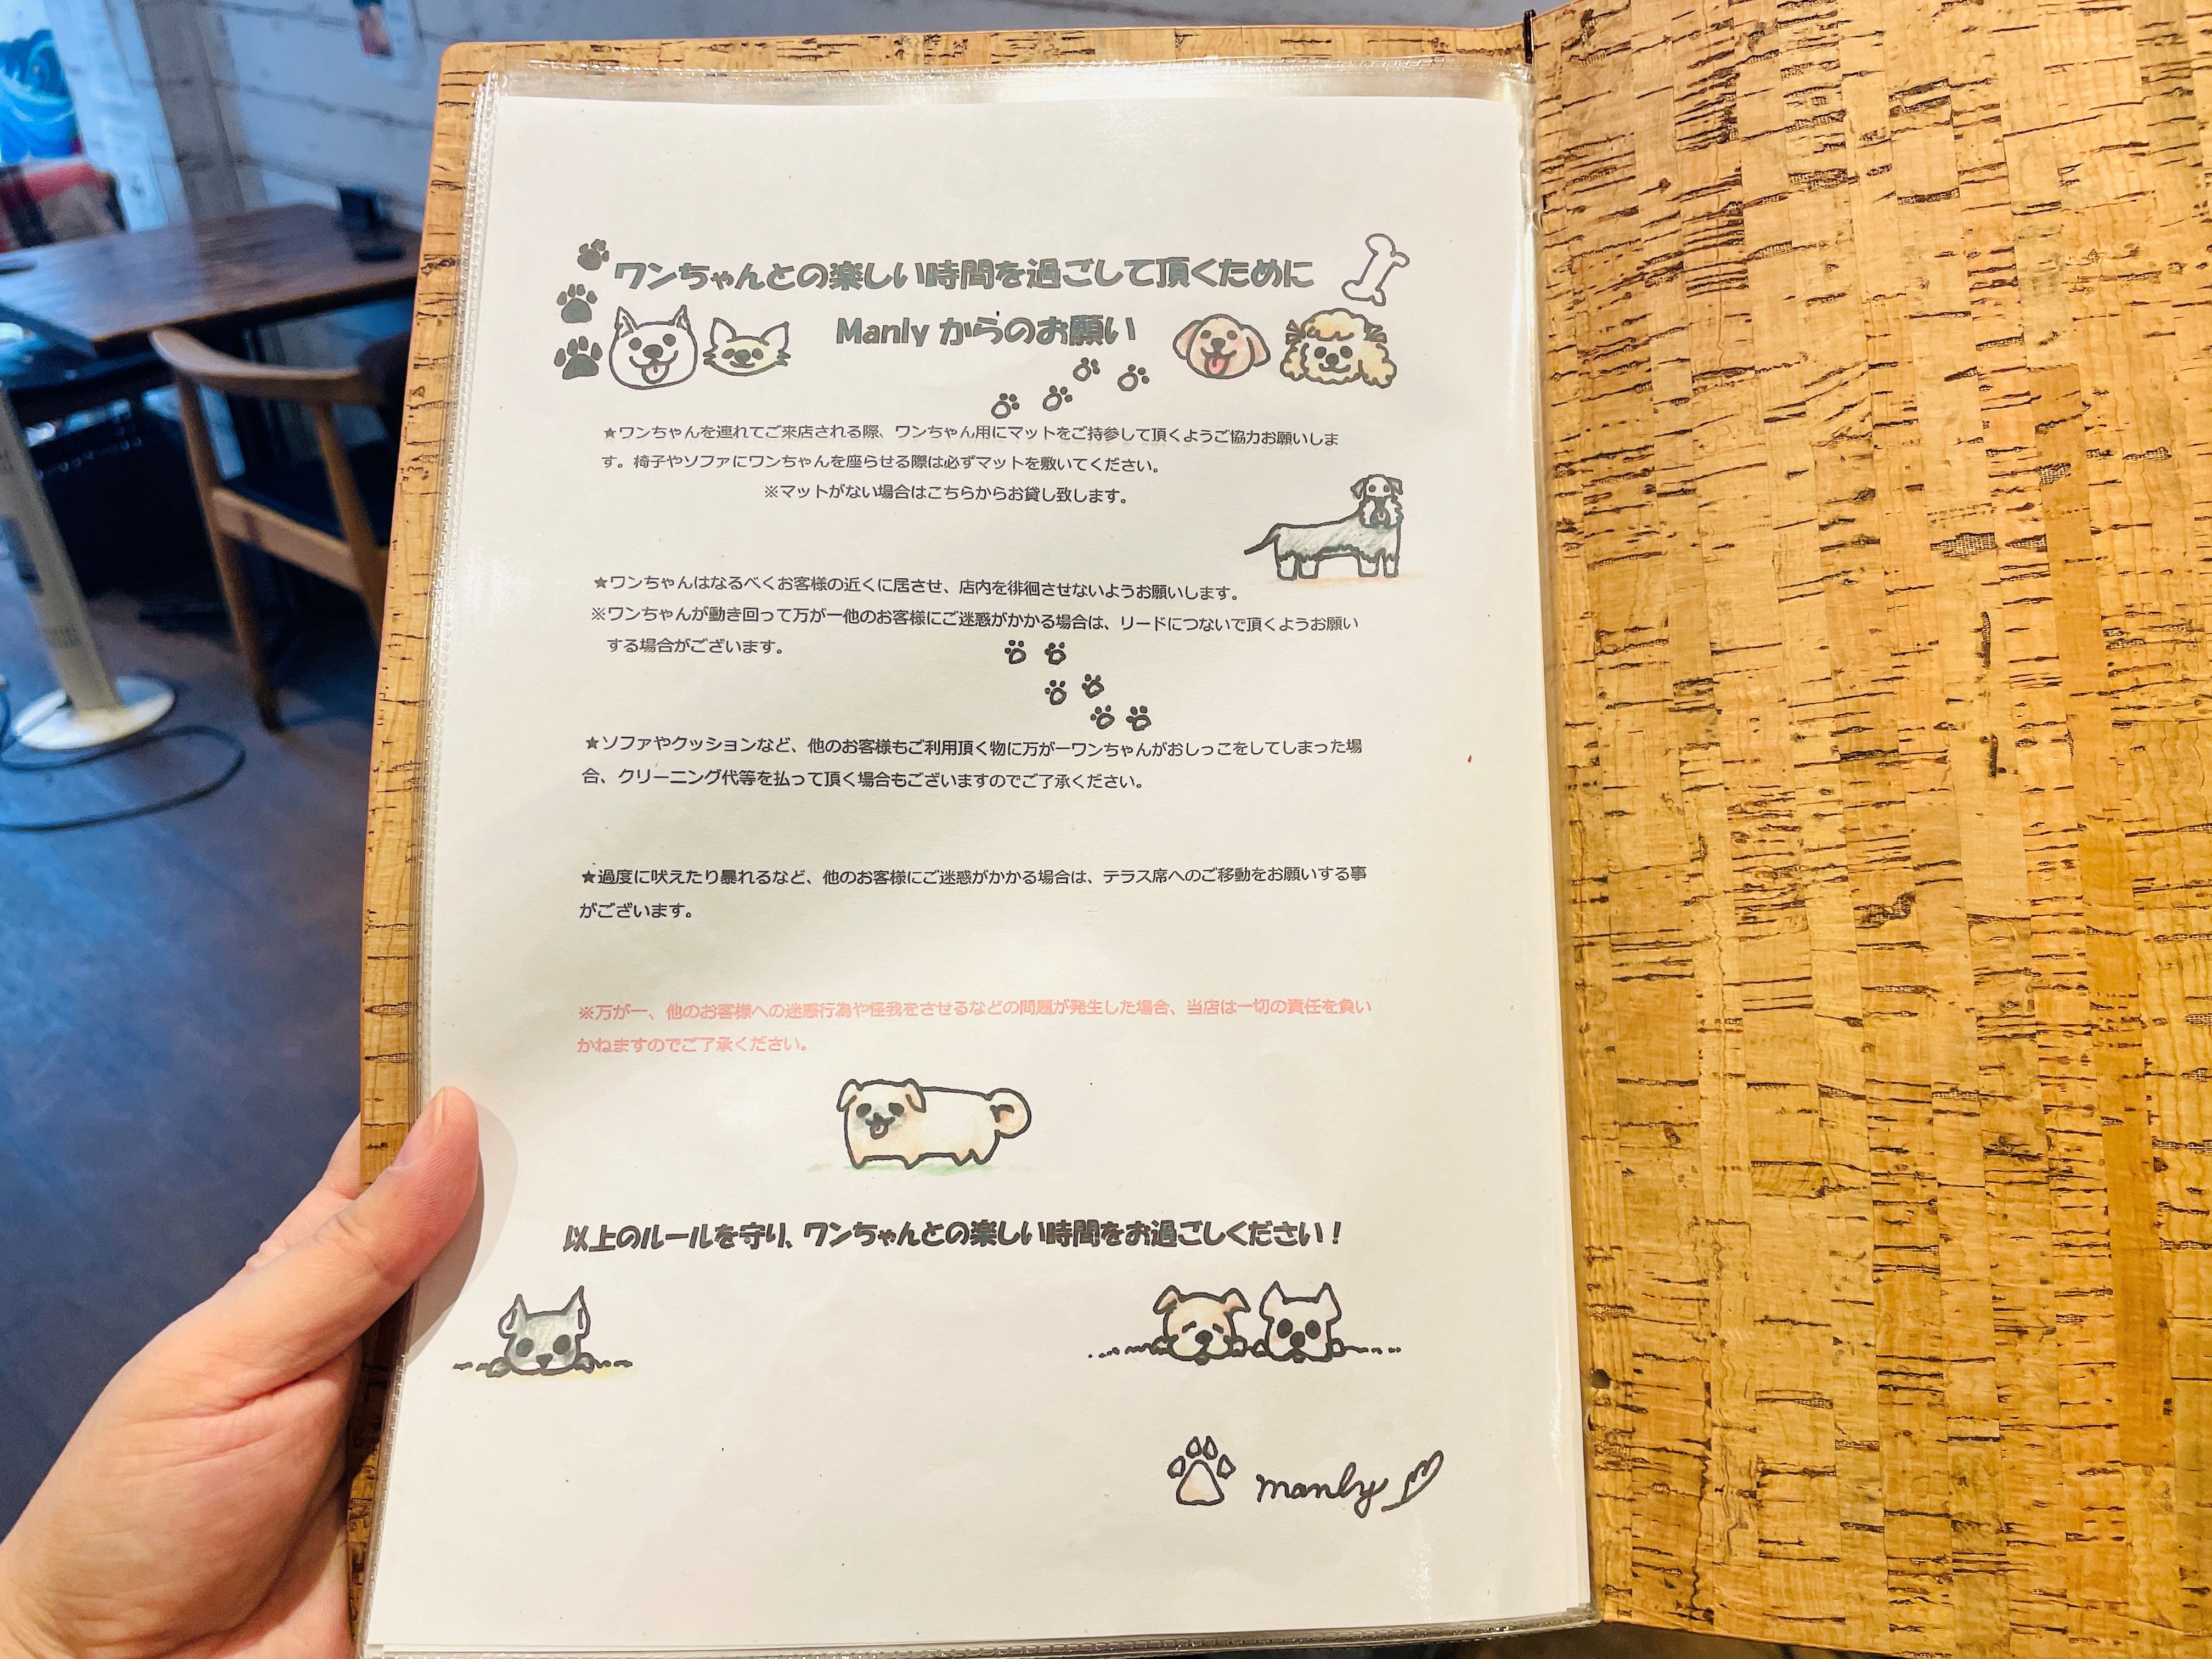 ワンちゃんとの楽しい時間を過ごして頂くために
Manly からのお願い
★ワンちゃんを連れてご来店される際、ワンちゃん用にマットをご持参して頂くようご協力お願いしま
す。椅子やソファにワンちゃんを座らせる際は必ずマットを敷いてください。
※マットがない場合はこちらからお貸し致します。
★ワンちゃんはなるべくお客様の近くに居させ、店内を徘徊させないようお願いします。
※ワンちゃんが動き回って万が一他のお客様にご迷惑がかかる場合は、リードにつないで頂くようお願い
する場合がございます。
★ソファやクッションなど、他のお客様もご利用頂く物に万が一ワンちゃんがおしっこをしてしまった場
合、クリーニング代等を払って頂く場合もございますのでご了承ください。
★過度に吠えたり暴れるなど、他のお客様にご迷惑がかかる場合は、テラス席へのご移動をお願いする事
がございます。
※万が一、他のお客様への迷惑行為や怪我をさせるなどの問題が発生した場合、当店は一切の責任を負い
かねますのでご了承ください。
以上のルールを守り、ワンちゃんとの楽しい時間をお過ごしください！
manly